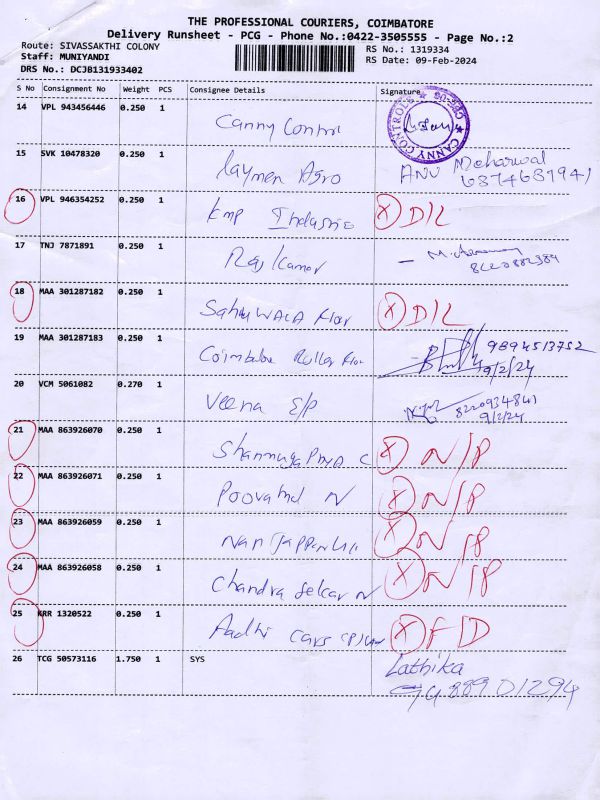 THE PROFESSIONAL COURIERS, COIMBATORE
Delivery Runsheet - PCG - Phone No.:0422-3505555 - Page No.:2
Route: SIVASSAKTHI COLONY RS No.: 1319334
Staff: MUNIYANDI RS Date: 09-Feb-2024
DRS No.: DCJB131933402
S No Consignment No Weight PCS Consignee Details Signature
14 VPL 943456446 0.250 1 Canny Control
CANNY CONTROLS
15 SVK 10478320 0.250 1 Laymen Agro ANU Meharwal
6374687941
16 VPL 946354252 0.250 1 kmp Industrie X D/L
17 TNJ 7871891 0.250 1 Raj Kumar
18 MAA 301287182 0.250 1 SahuWALA Flor X D/L
19 MAA 301287183 0.250 1 Coimbatore Roller Flor 9894513752
9/2/24
20 VCM 5061082 0.270 1 Veena E/P 8220934841
9/2/24
21 MAA 863926070 0.250 1 Shanmuga Priya C X N/P
22 MAA 863926071 0.250 1 Poovathal N X N/P
23 MAA 863926059 0.250 1 X N/P
24 MAA 863926058 0.250 1 Chandra Sekar N X N/P
25 KRR 1320522 0.250 1 Aadhi Cars X F/D
26 TCG 50573116 1.750 1 SYS Lathika
9488901294